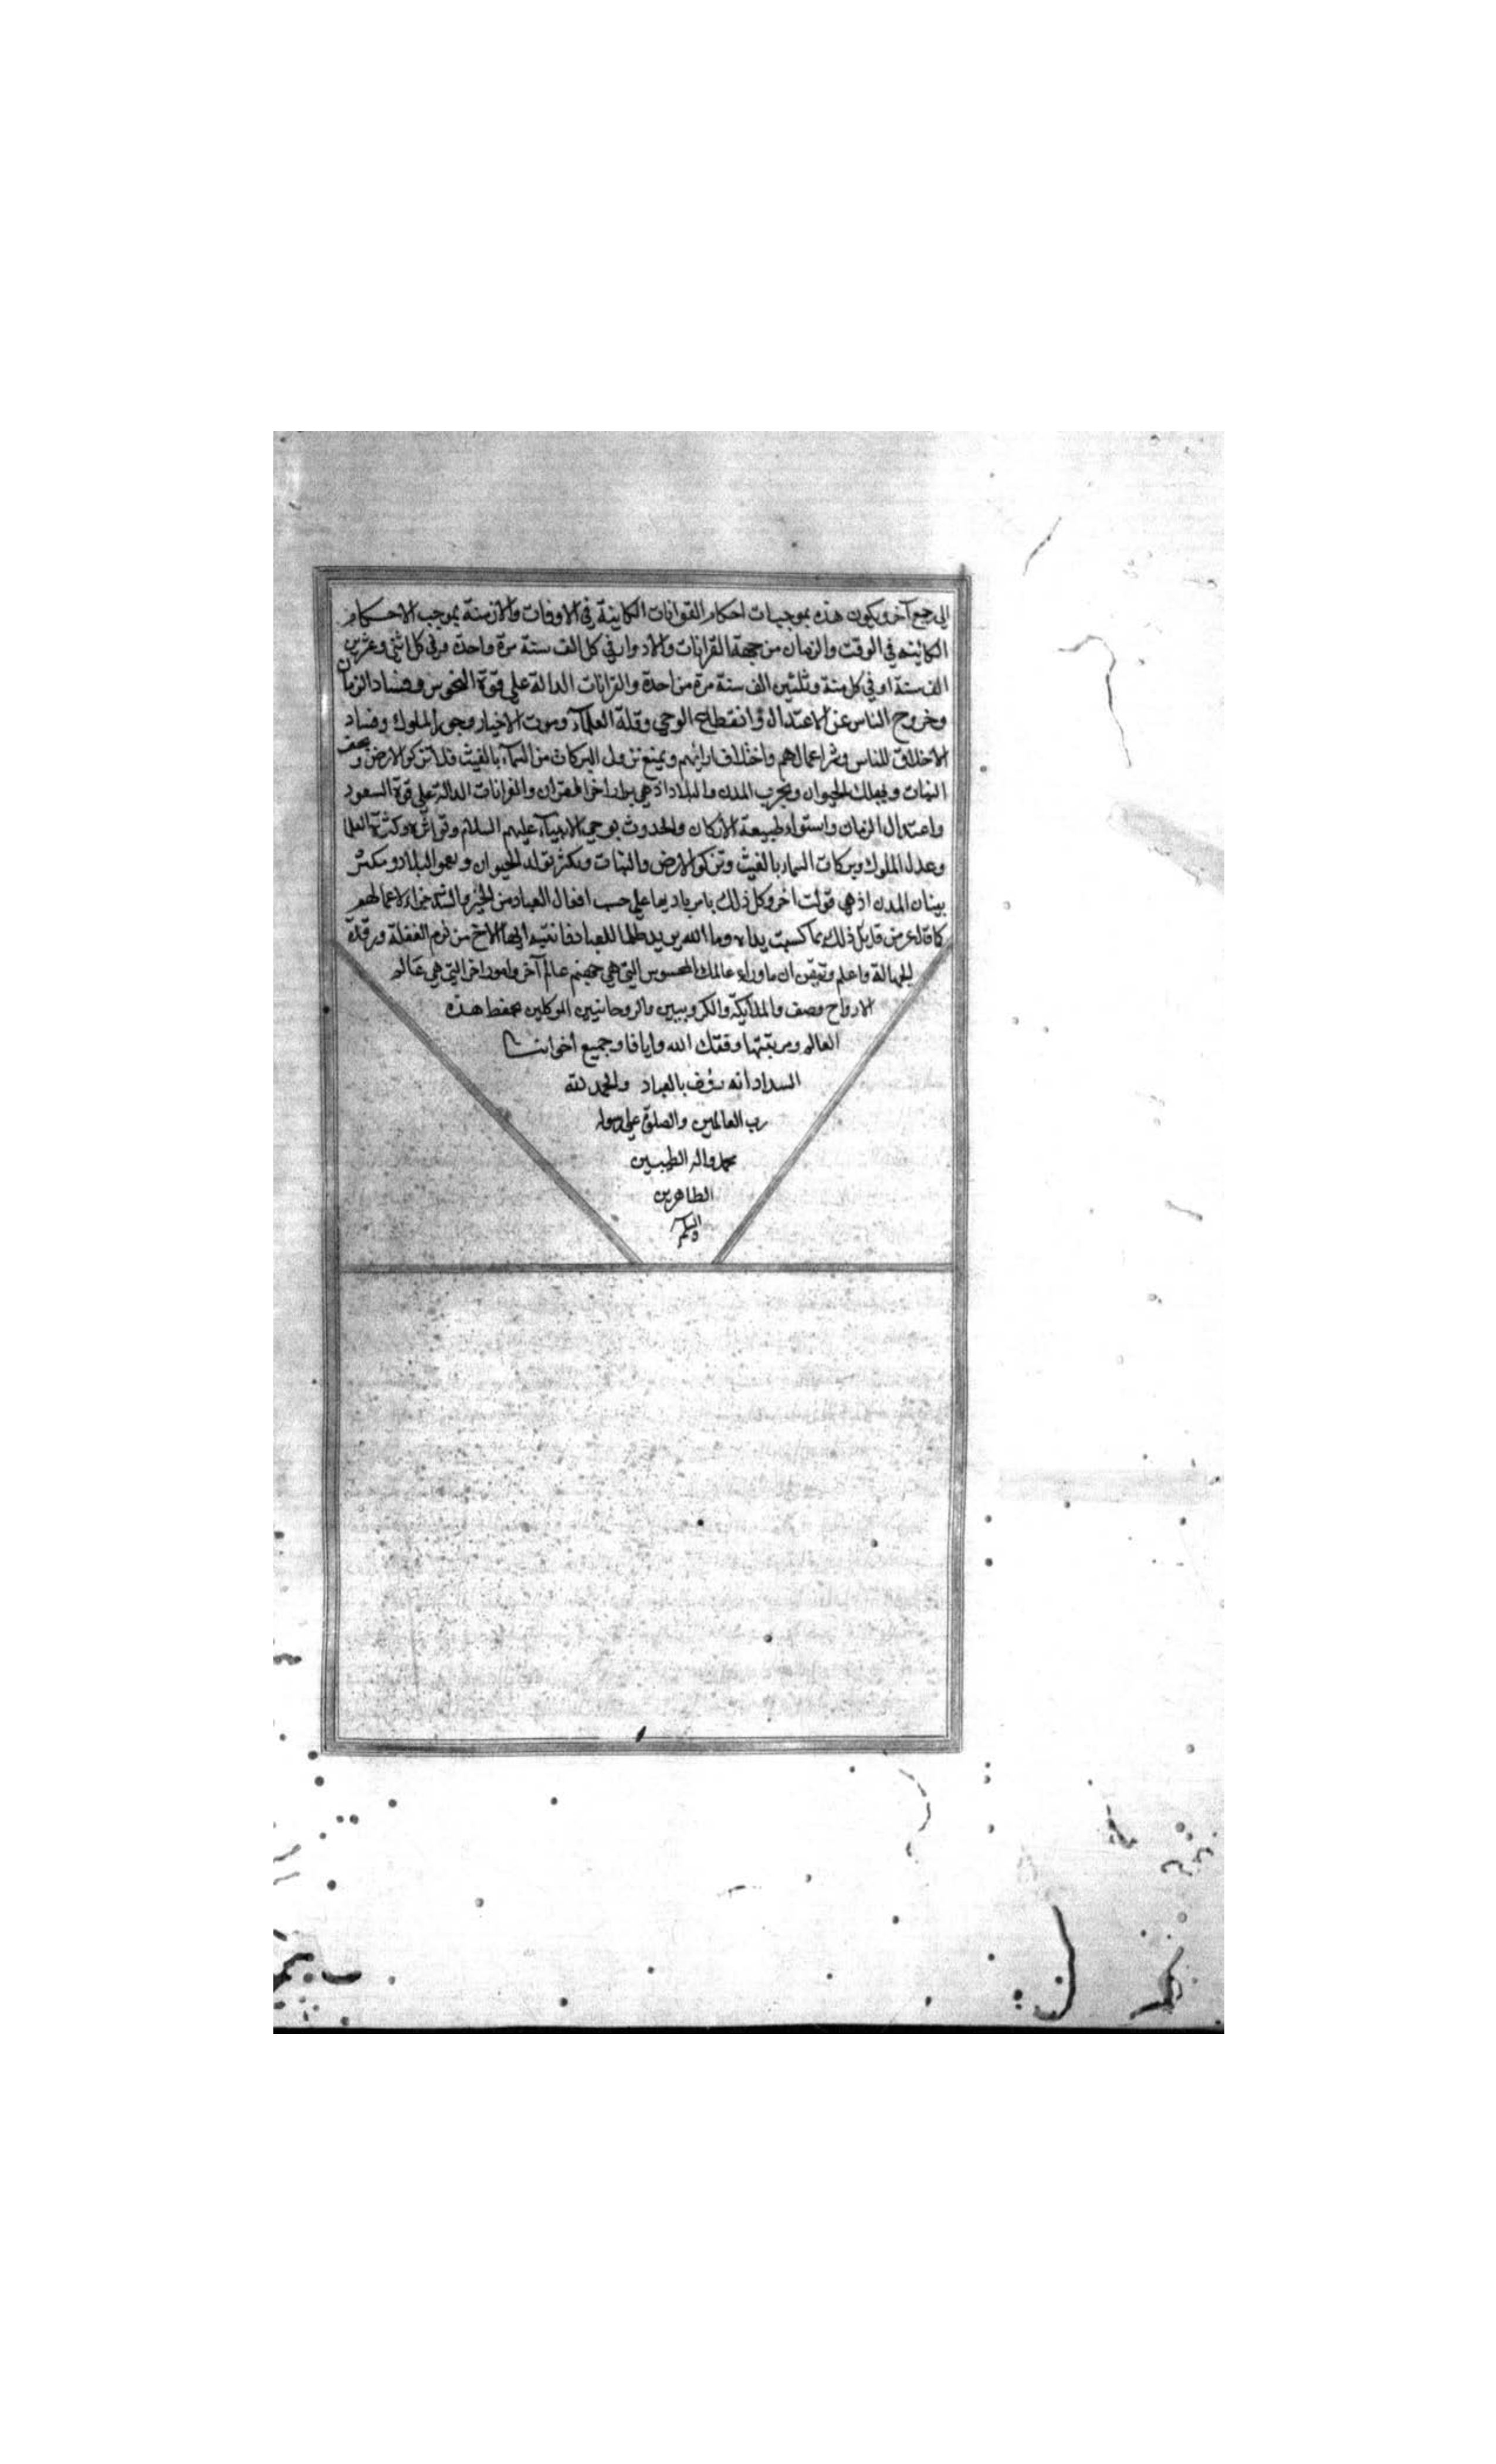 الى رجع آخر ويكون هذه بموجبات احكام القرانات الكاينة في الاوقات والازمنة بموجب الاحكام
الكائنه في الوقت والزمان من جهة القرانات والادوار في كل الف سنة مرة واحدة وفي كل اثني وعشرين
الف سنة او في كل ستة وثلثين الف سنة مرة واحدة والقرانات الدالة على قوة النحوس وفساد الزمان
وخروج الناس عن الاعتدال وانقطاع الوحي وقلة العلمآء وموت الاخيار وجور الملوك وفساد
الاخلاق للناس وشر اعمالهم واختلاف ارائهم ويمنع نزول البركات من السمآء بالغيث فلا تزكو الارض ويجف
النبات ويهلك الحيوان ويخرب المدن والبلاد اذ هي برار اخر القران والقرانات الدالة على قوة السعود
واعتدال الزمان واستواء طبيعة الاركان والحدوث بوحي الانبيآء عليهم السلام وتواتره وكثرة العلما
وعدل الملوك وبركات السماء بالغيث وتزكو الارض والنبات ويكثر تولد الحيوان ويعمر البلاد ويكثر
بينان المدن اذ هي تولت اخر وكل ذلك بامر باديها على حسب افعال العباد من الخير والشر جزاء لاعمالهم
كما قال عز من قايل ذلك بما كسبت يداه وما الله يريد ظلما للعباد فانتبه ايها الاخ من نوم الغفلة ورقدة
الجهالة واعلم وتيقن ان ماوراء عالمك المحسوس التي هي جهنم عالم آخر وامور اخر التي هي عالم
الارواح وصف والملايكة والكروبيين والروحانيين الموكلين بحفظ هذه
العالم ومربتها وفقك الله وايانا وجميع أخواننا
السداد انه رؤف بالعباد والحمد لله
رب العالمين والصلوة على رسوله
محمد واله الطيبين
الطاهرين
والسلم